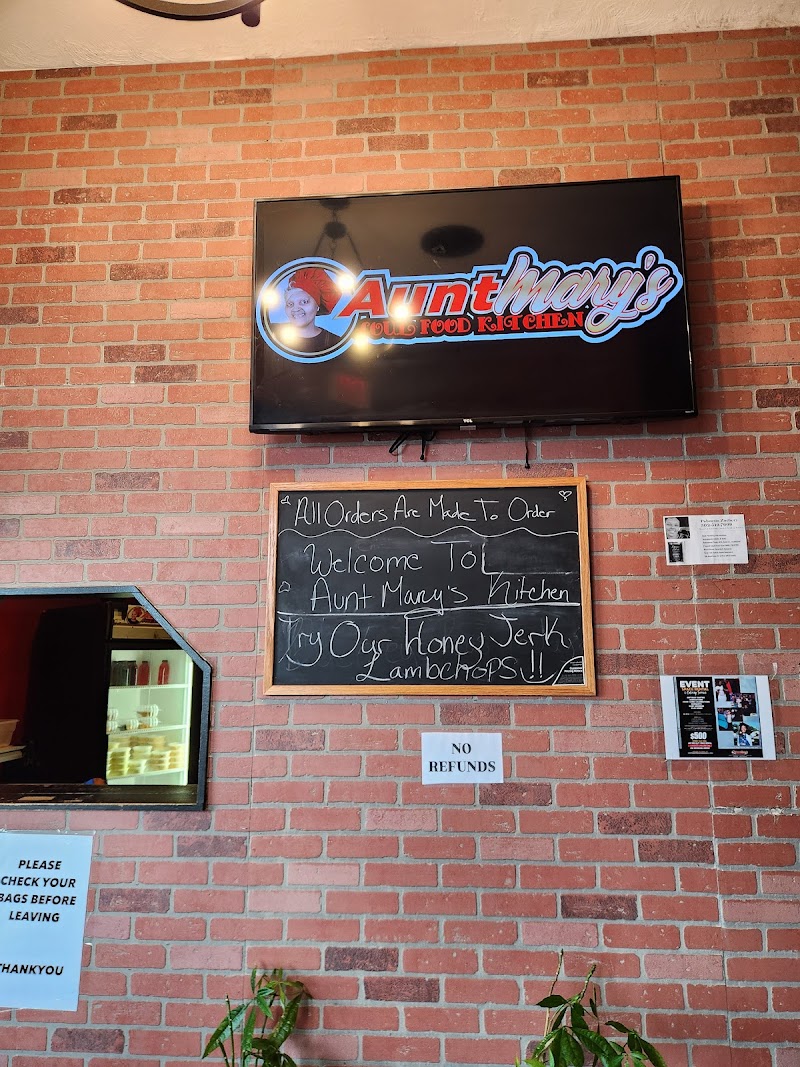 Aunt Mary's
SOUL FOOD KITCHEN
TCL
All Orders Are Made To Order
Welcome To
Aunt Mary's Kitchen
Try Our Honey Jerk
Lambchops!!
NO
REFUNDS
EVENT
$500
PLEASE
CHECK YOUR
BAGS BEFORE
LEAVING
THANKYOU